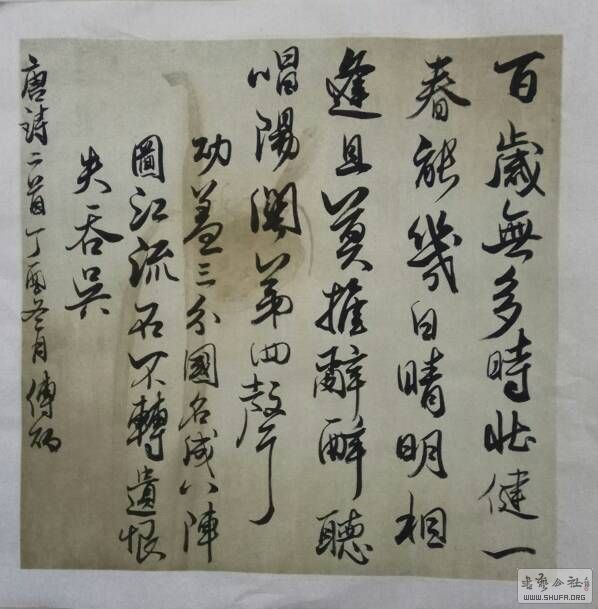 百歲無多時壯健一
春能幾日晴明相
逢且莫推辭醉聽
唱陽關第四聲
功蓋三分國名成八陣
圖江流石不轉遺恨
失吞吴
唐詩二首丁酉冬月傅
書藝公社
WWW.SHUFA.ORG